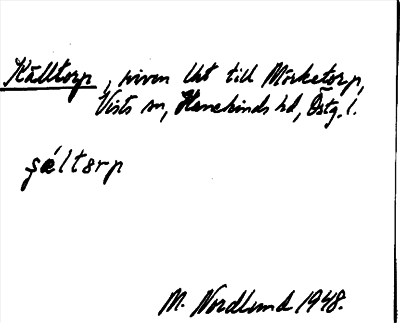 Källtorp, riven lht till Mörketorp,
Vists sn, Hanekinds hd, Östg. l.
şæ´ltɵrp
M. Nordlund 1948.